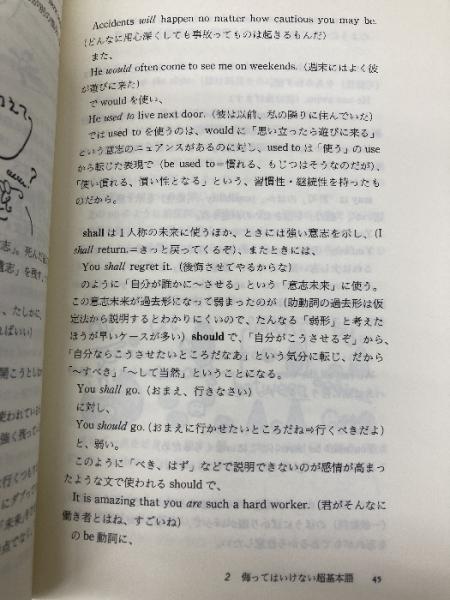 Accidents will happen no matter how cautious you may be.
(どんなに用心深くしても事故ってものは起きるもんだ)
また、
He would often come to see me on weekends. (週末にはよく彼
が遊びに来た)
でwouldを使い、
He used to live next door. (彼は以前、私の隣りに住んでいた)
ではused toを使うのは、wouldに「思い立ったら遊びに来る」
という意志のニュアンスがあるのに対し、used toは「使う」のuse
から転じた表現で (be used to=慣れる、もじつはそうなのだが)、
「使い慣れる、慣い性となる」という、習慣性・継続性を持ったも
のだから。
shallは1人称の未来に使うほか、ときには強い意志を示し、(I
shall return.=きっと戻ってくるぞ)、またときには、
You shall regret it. (後悔させてやるからな)
のように「自分が誰かに〜させる」という「意志未来」に使う。
この意志未来が過去形になって弱まったのが (助動詞の過去形は仮
定法から説明するとわかりにくいので、たんなる「弱形」と考えた
ほうが早いケースが多い) shouldで、「自分がこうさせるぞ」から、
「自分ならこうさせたいところだなあ」という気分に転じ、だから
「〜すべき」「〜して当然」ということになる。
You shall go. (おまえ、行きなさい)
に対し、
You should go. (おまえに行かせたいところだね⇒行くべきだよ)
と、弱い。
このように「べき、はず」などで説明できないのが感情が高まっ
たような文で使われるshouldで、
It is amazing that you are such a hard worker. (君がそんなに
働き者とはね、すごいね)
のbe動詞に、
2 侮ってはいけない超基本語 45